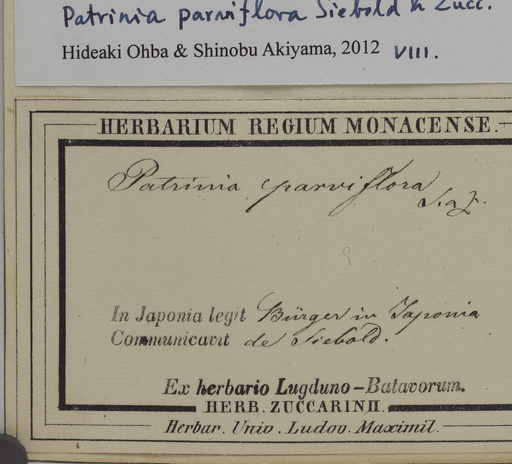 Patrinia parviflora Siebold & Zucc.
Hideaki Ohba & Shinobu Akiyama, 2012 VIII.
HERBARIUM REGIUM MONACENSE.
Patrinia parviflora
S. a Z.
In Japonia legit Bürger in Japonia
Communicavit de Siebold.
Ex herbario Lugduno-Batavorum.
HERB. ZUCCARINII.
Herbar. Univ. Ludov. Maximil.